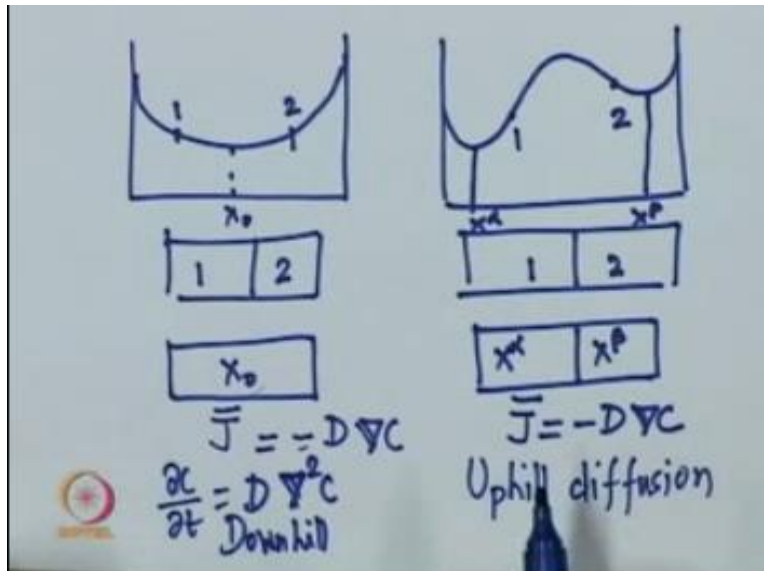 1 2
x₀
1 2
x₀
J̅ = -D∇C
∂c/∂t = D∇²C
Downhill
1 2
x^α x^β
1 2
x^α x^β
J̅ = -D∇C
Uphill diffusion
NPTEL